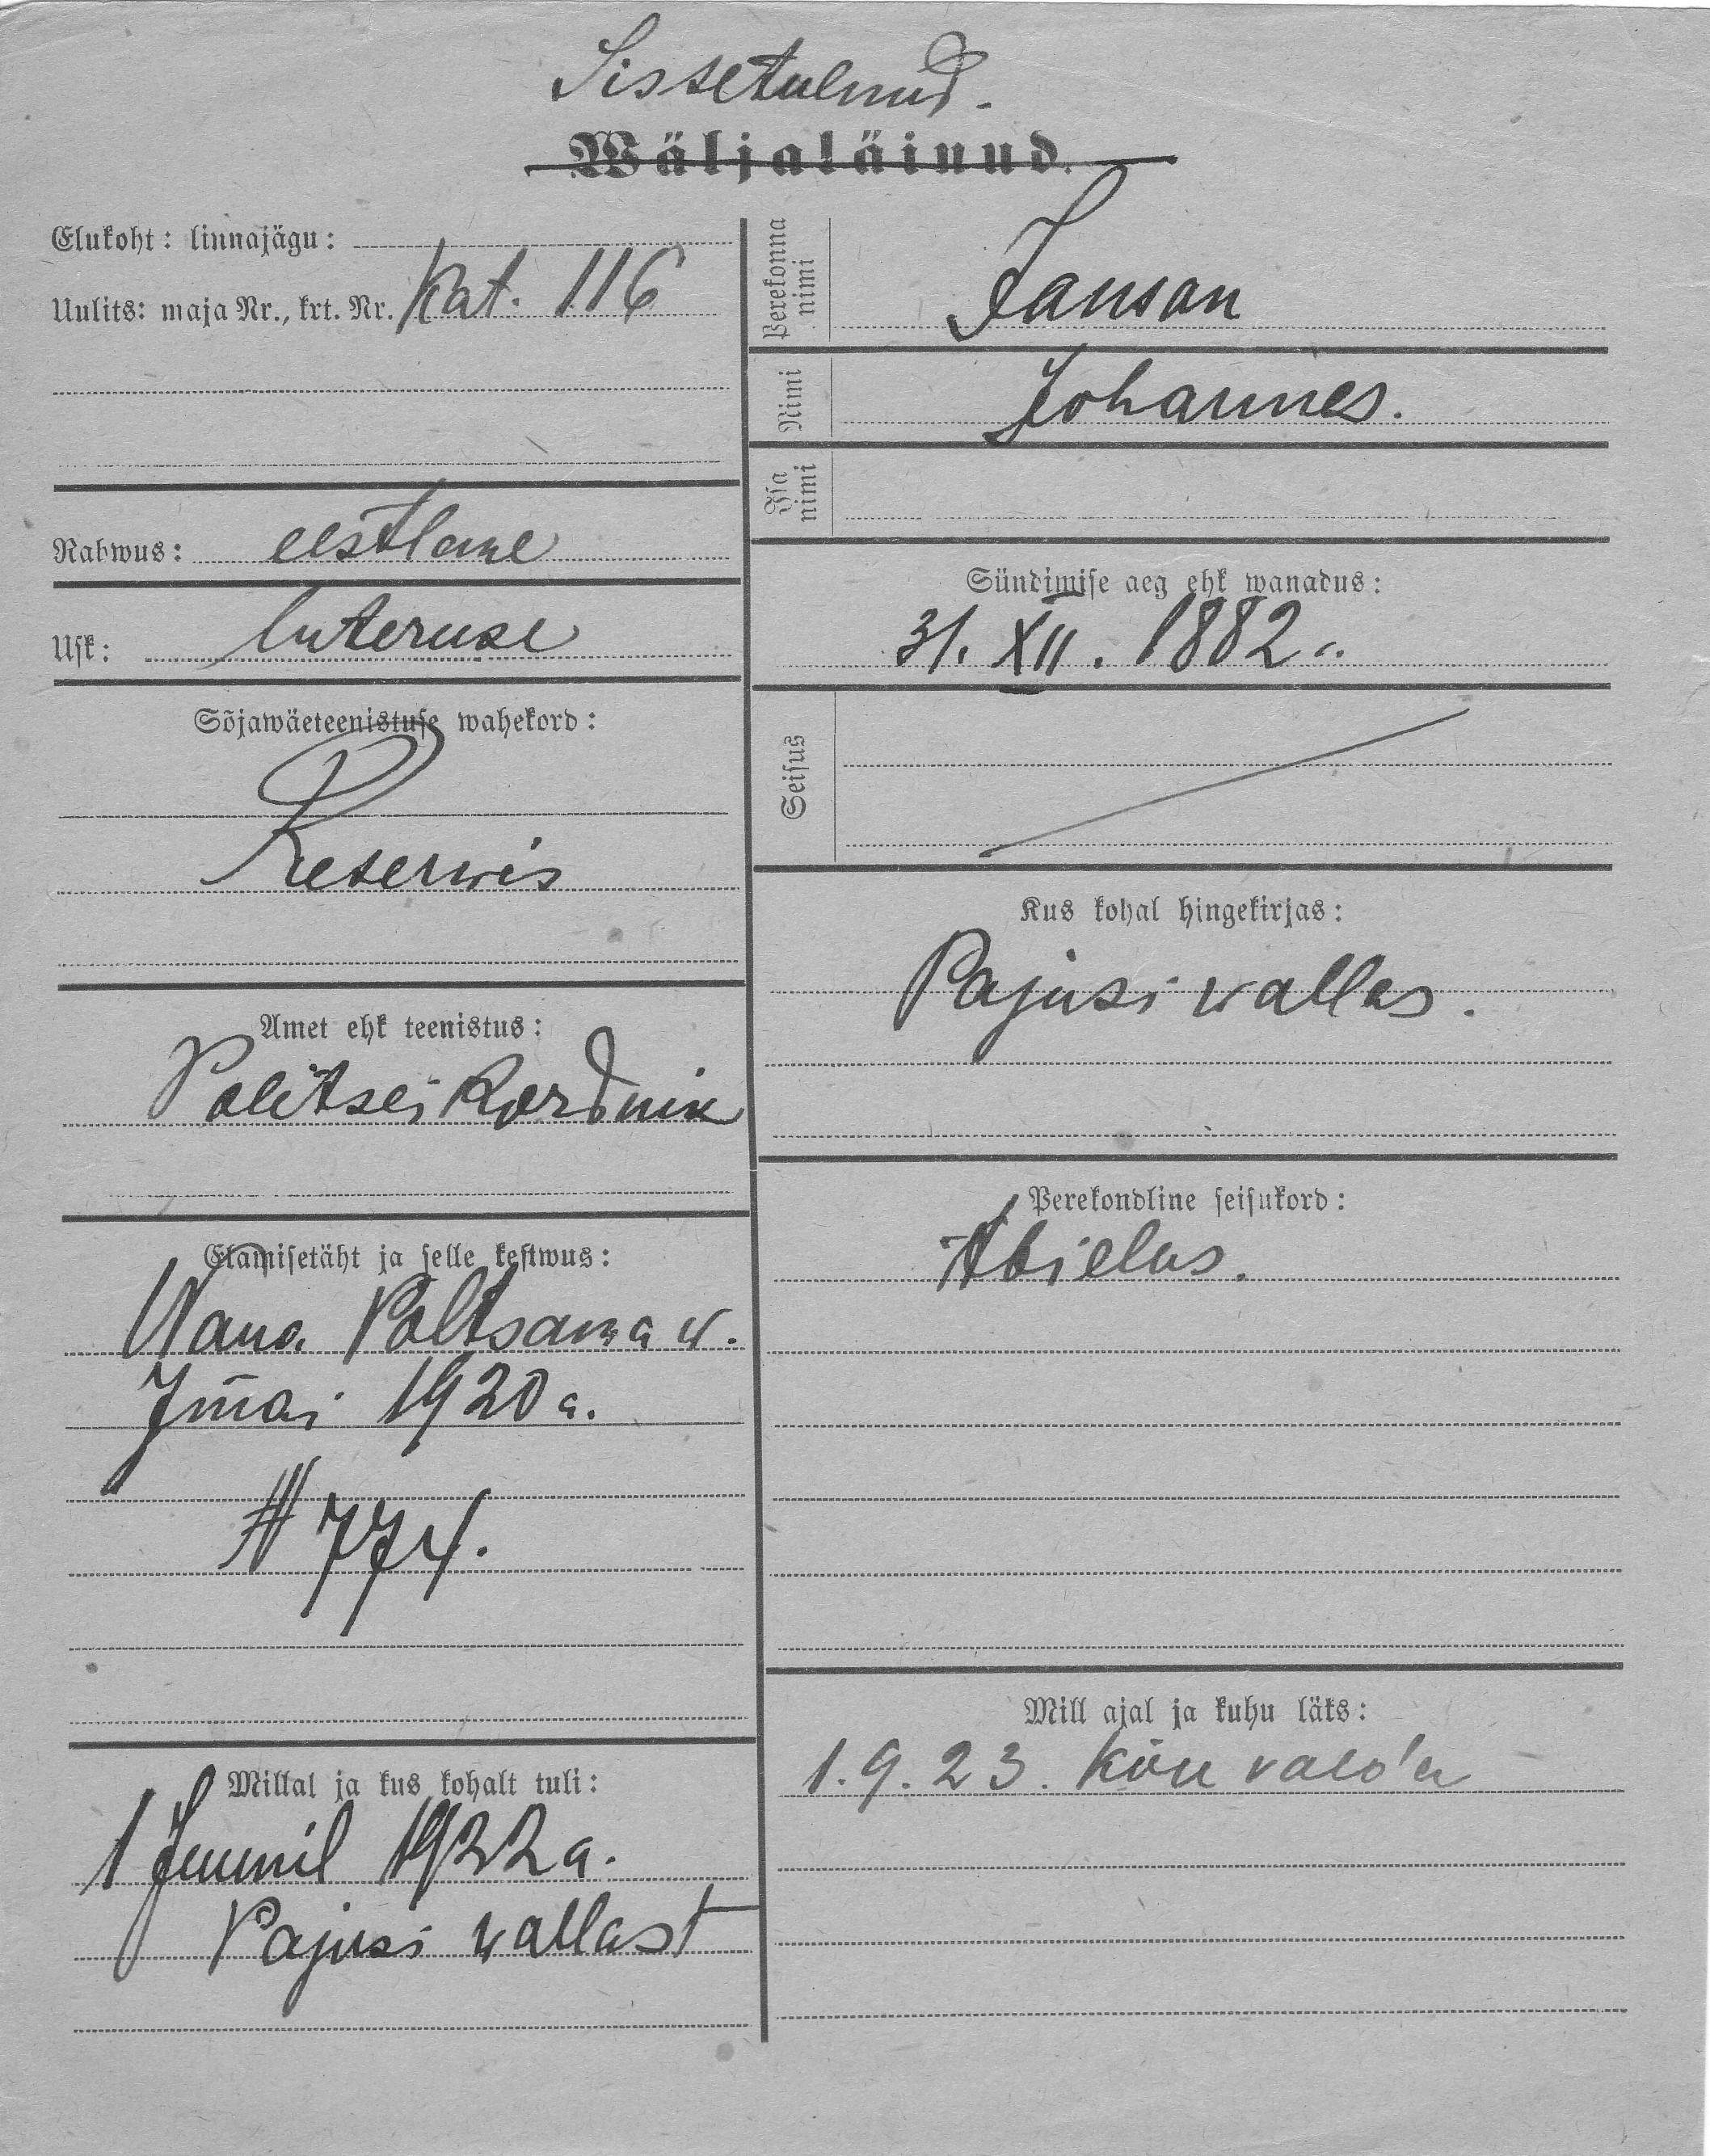 Sissetulnud.
Wäljaläinud.
Elukoht: linnajägu:
Uulits: maja Nr., krt. Nr. Kat. 116
Rahwus: eestlane
Usk: luteruse
Sõjawäeteenistuse wahekord:
Reserwis
Amet ehk teenistus:
Politsei Kordnik
Elamisetäht ja selle kestwus:
Wana Poltsama w.
mai 1920 a.
№ 774.
Millal ja kus kohalt tuli:
1 Juunil 1922 a.
Pajusi wallast
Perekonna nimi
Janson
Nimi
Johannes.
Isa nimi
Sündimise aeg ehk wanadus:
31. XII. 1882 a.
Seisus
Kus kohal hingekirjas:
Pajusi wallas.
Perekondline seisukord:
Abielus.
Mill ajal ja kuhu läks:
1.9.23. Kõu